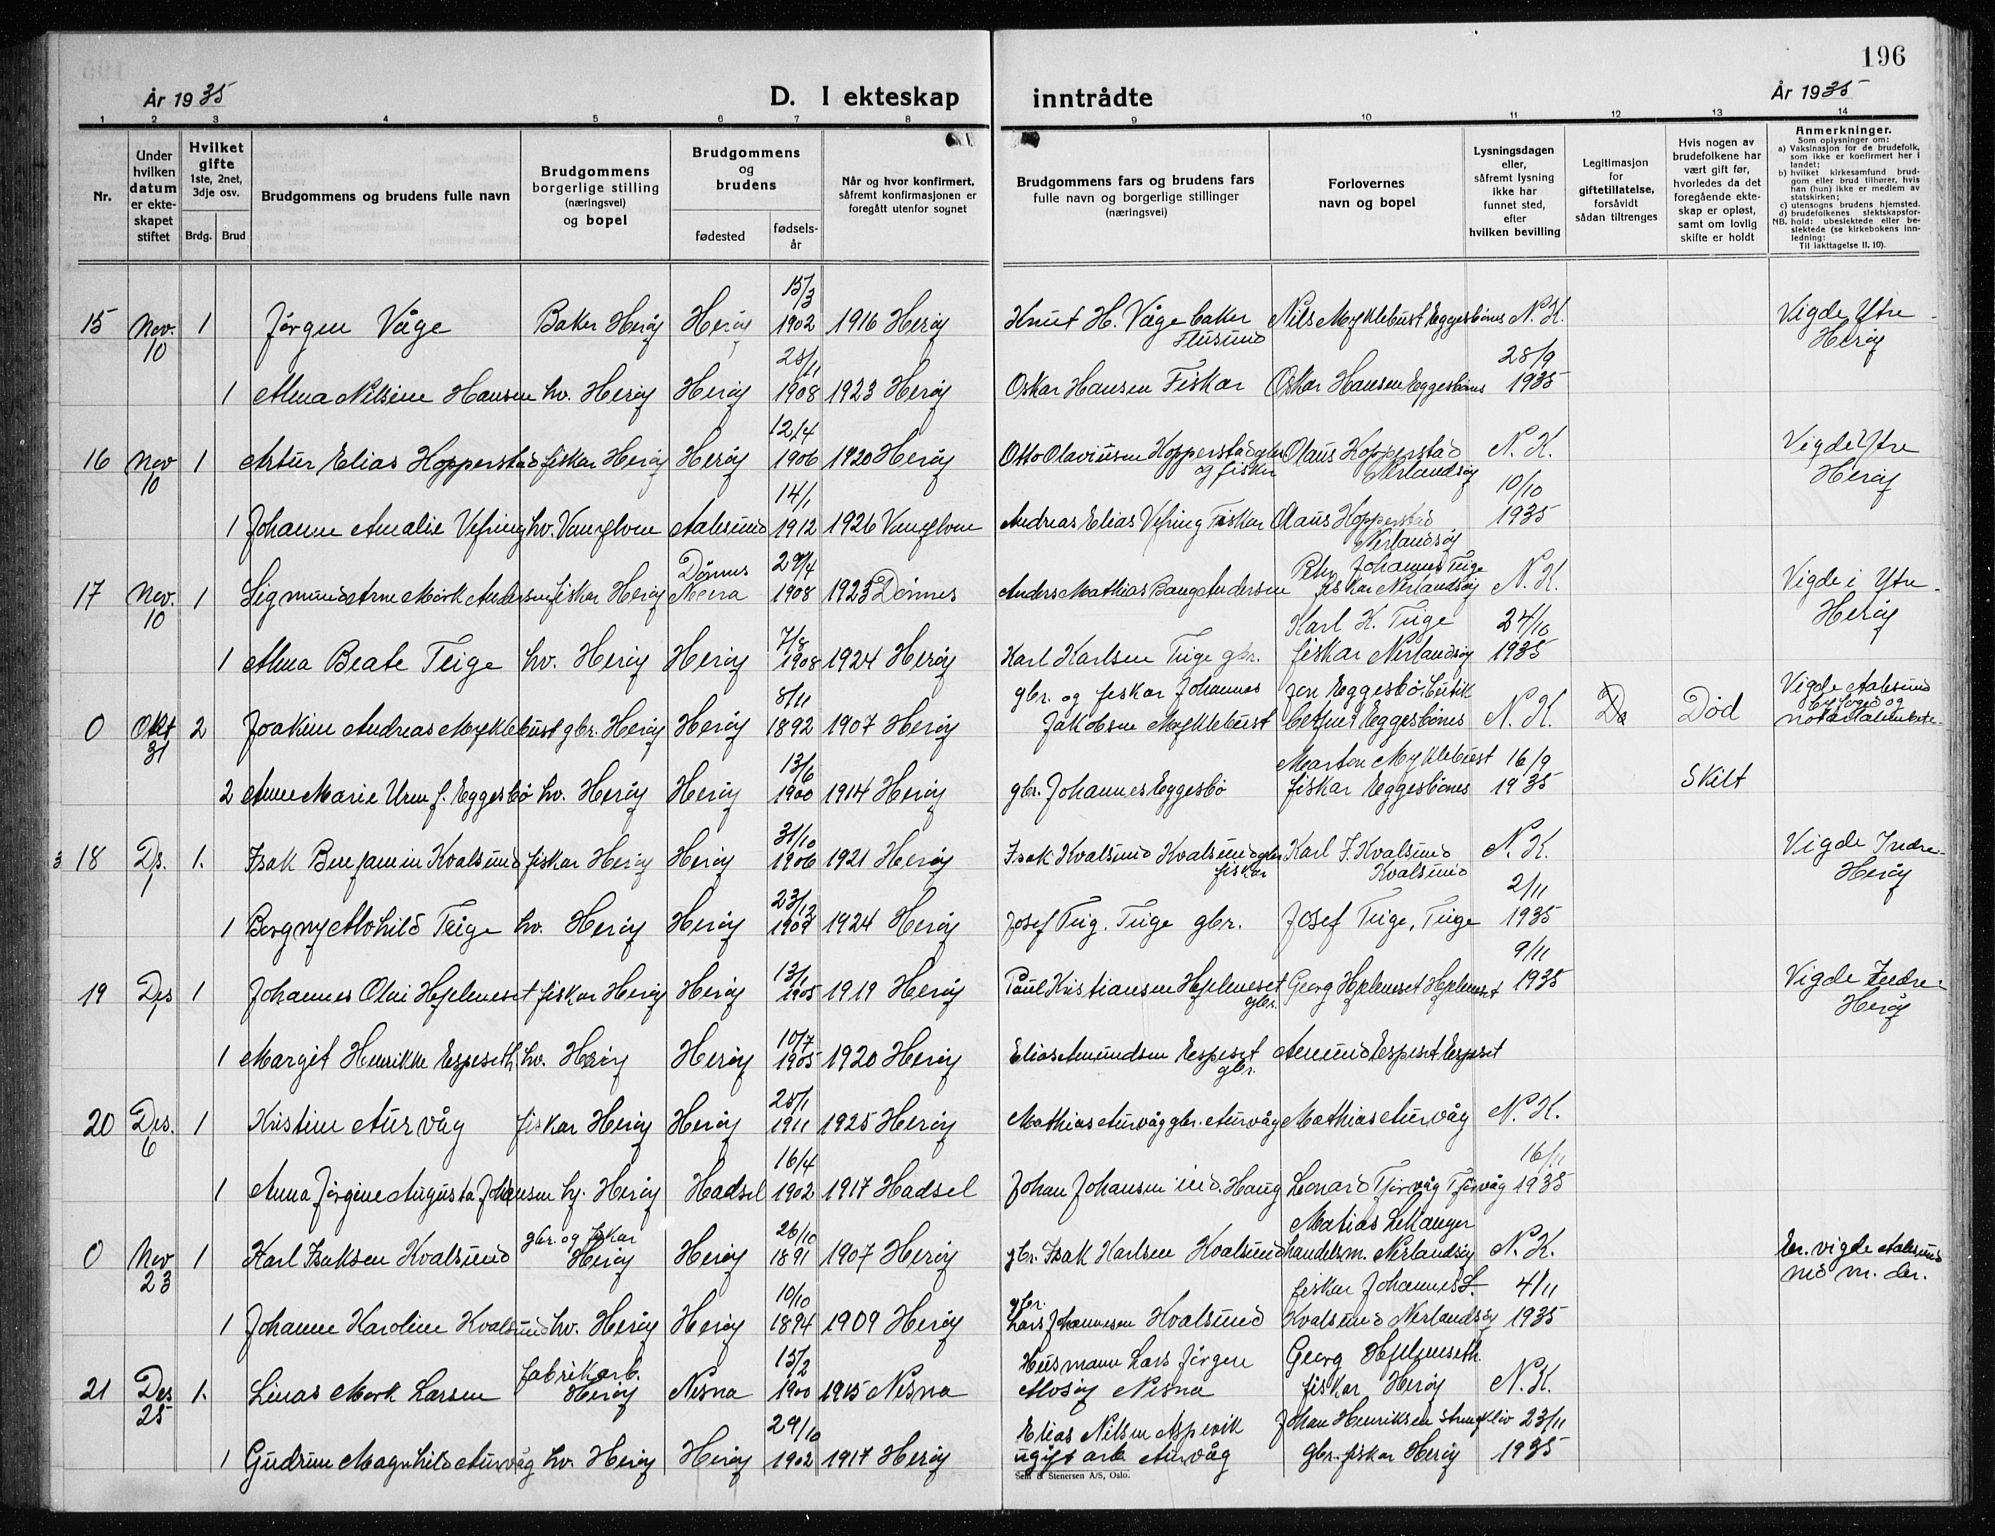 196
År 1935
D. I ekteskap inntrådte
År 1935
1 2 3 4 5 6 7 8 9 10 11 12 13 14
Nr.
Under hvilken datum er ekteskapet stiftet
Hvilket gifte 1ste, 2net, 3dje osv.
Brdg. Brud
Brudgommens og brudens fulle navn
Brudgommens borgerlige stilling (næringsvei) og bopel
Brudgommens og brudens
fødested
fødselsår
Når og hvor konfirmert, såfremt konfirmasjonen er foregått utenfor sognet
Brudgommens fars og brudens fars fulle navn og borgerlige stillinger (næringsvei)
Forlovernes navn og bopel
Lysningsdagen eller, såfremt lysning ikke har funnet sted, efter hvilken bevilling
Legitimasjon for giftetillatelse, forsåvidt sådan tiltrenges
Hvis nogen av brudefolkene har vært gift før, hvorledes da det foregående ekteskap er opløst, samt om lovlig skifte er holdt
Anmerkninger.
Som oplysninger om:
a) Vaksinasjon for de brudefolk, som ikke er konfirmert her i landet;
b) hvilket kirkesamfund brudgom eller brud tilhører, hvis han (hun) ikke er medlem av statskirken;
c) utensogns brudens hjemsted.
d) brudefolkenes slektskapsforhold: ubeslektede eller beslektede (se kirkebokens innledning:
NB.
Til iakttagelse II. 10).
15 Nov. 10 1 Jørgen Våge Baker Herøy Herøy 15/3 1902 1916 Herøy Knut H. Våge baker Flusund Nils Myklebust Eggesbønes N. K. Vigde Ytre Herøy
1 Alma Nilsine Hansen hv. Herøy Herøy 25/1 1908 1923 Herøy Oskar Hansen Fiskar Oskar Hansen Eggesbønes 28/9 1935
16 Nov 10 1 Artur Elias Hopperstad fiskar Herøy Herøy 12/4 1906 1920 Herøy Otto Olaviusen Hopperstad gbr og fisker Olaus Hopperstad Nerlandsøy N. K. Vigde Ytre Herøy
1 Johanne Amalie Vefring hv. Vanylven Aalesund 14/1 1912 1926 Vanylven Andreas Elias Vefring Fiskar Olaus Hopperstad Nerlandsøy 10/10 1935
17 Nov. 10 1 Sigmund Arne Mørk Andersen fiskar Herøy Dønnes 29/4 1908 1923 Dønnes Anders Mathias Bang Andersen Peter Johannes Teige fiskar Nerlandsøy N. K. Vigde i Ytre Herøy
1 Alma Beate Teige hv. Herøy Herøy 7/8 1908 1924 Herøy Karl Karlsen Teige gbr. Karl K. Teige fiskar Nerlandsøy 24/10 1935
0 Okt 31 2 Joakim Andreas Myklebust gbr. Herøy Herøy 8/11 1892 1907 Herøy gbr. og fiskar Johannes Jakobsen Myklebust Jon Eggesbø Eggesbønes N. K. Død Vigde Aalesund byfoged og
2 Anne Marie Urne f. Eggesbø hv. Herøy Herøy 13/6 1900 1914 Herøy gbr. Johannes Eggesbø Marton Myklebust fiskar Eggesbønes 16/9 1935 Skilt
18 Ds. 1 1. Isak Benjamin Kvalsund fiskar Herøy Herøy 31/10 1906 1921 Herøy Isak Kvalsund Kvalsund gbr fiskar Karl I. Kvalsund Kvalsund N. K. Vigde Indre Herøy
1 Borgny Alvhild Teige hv. Herøy Herøy 23/12 1909 1924 Herøy Josef Teig. Teige gbr. Josef Teige, Teige 2/11 1935
19 Des 1 1 Johannes Olai Hjelmeset fiskar Herøy Herøy 13/1 1905 1919 Herøy Paul Kristiansen Hjelmeset gbr. Georg Hjelmeset Hjelmeset 9/11 1935 Vigde Indre Herøy
1 Margit Henrikke Espeseth hv. Herøy Herøy 10/7 1905 1920 Herøy Elias Amundsen Espeset gbr. Amund Espeset Espeset
20 Des. 6 1 Kristine Aurvåg fiskar Herøy Herøy 25/1 1911 1925 Herøy Mathias Aurvåg gbr. Aurvåg Mathias Aurvåg N. K.
1 Anna Jørgine Augusta Johansen hj. Herøy Hadsel 16/4 1902 1917 Hadsel Johan Johansen ind. Haug Lenard Tjørvåg Tjørvåg 16/11 1935
0 Nov 23 1 Karl Isaksen Kvalsund gbr. og fiskar Herøy Herøy 26/10 1891 1907 Herøy gbr. Isak Karlsen Kvalsund Matias Lekanger handelsm. Nerlandsøy N. K. Br. vigde Aalesund
1 Johanne Karoline Kvalsund hv. Herøy Herøy 10/10 1894 1909 Herøy gbr. Lars Johannesen Kvalsund fiskar Johannes L. Kvalsund Nerlandsøy 4/11 1935
21 Des 25 1. Linas Mørk Larsen fabrikarb. Herøy Nesna 15/2 1900 1915 Nesna Husmann Lars Jørgen Alvsøy Nesna Georg Hjelmeseth fiskar Herøy N. K.
1 Gudrun Magnhild Aurvåg hv. Herøy Herøy 29/10 1902 1917 Herøy Elias Nilsen Aspevik ugift arb Aurvåg Johan Henriksen gbr. fiskar Herøy 23/11 1935
Sem & Stenersen A/S, Oslo.